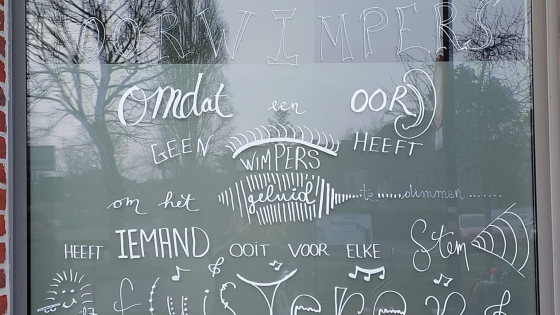 OORWIMPERS
Omdat een OOR
GEEN WIMPERS HEEFT
om het geluid te dimmen......
HEEFT IEMAND OOIT VOOR ELKE Stem